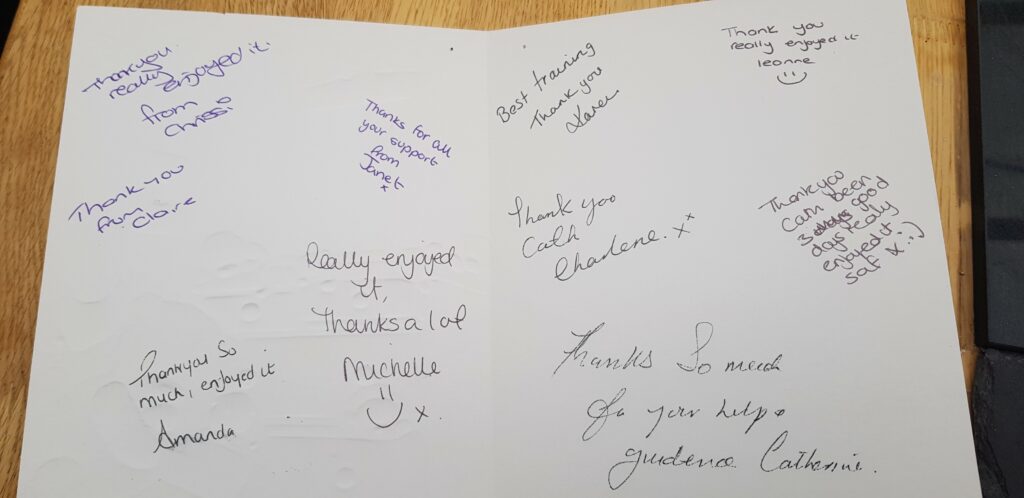 Thankyou
really enjoyed it
from
Chrissi
Thanks for all
your support
from
Janet
x
Thank you
from Claire
Really enjoyed
it,
Thanks a lot
Michelle
x.
Thankyou So
much, enjoyed it
Amanda
Best training
Thank you
Karen
Thank you
really enjoyed it
leanne
Thank you
Cath
Charlene. x x
Thankyou
Cath been
3 good
days really
enjoyed it.
saf x :)
Thanks So much
for your help &
guidence Catherine.